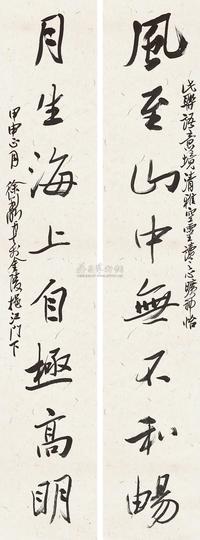 風至山中無不和暢
此聯語意境清雅空靈讀之心曠神怡
月生海上自極高明
甲申正月徐利明書於金陵挹江門下